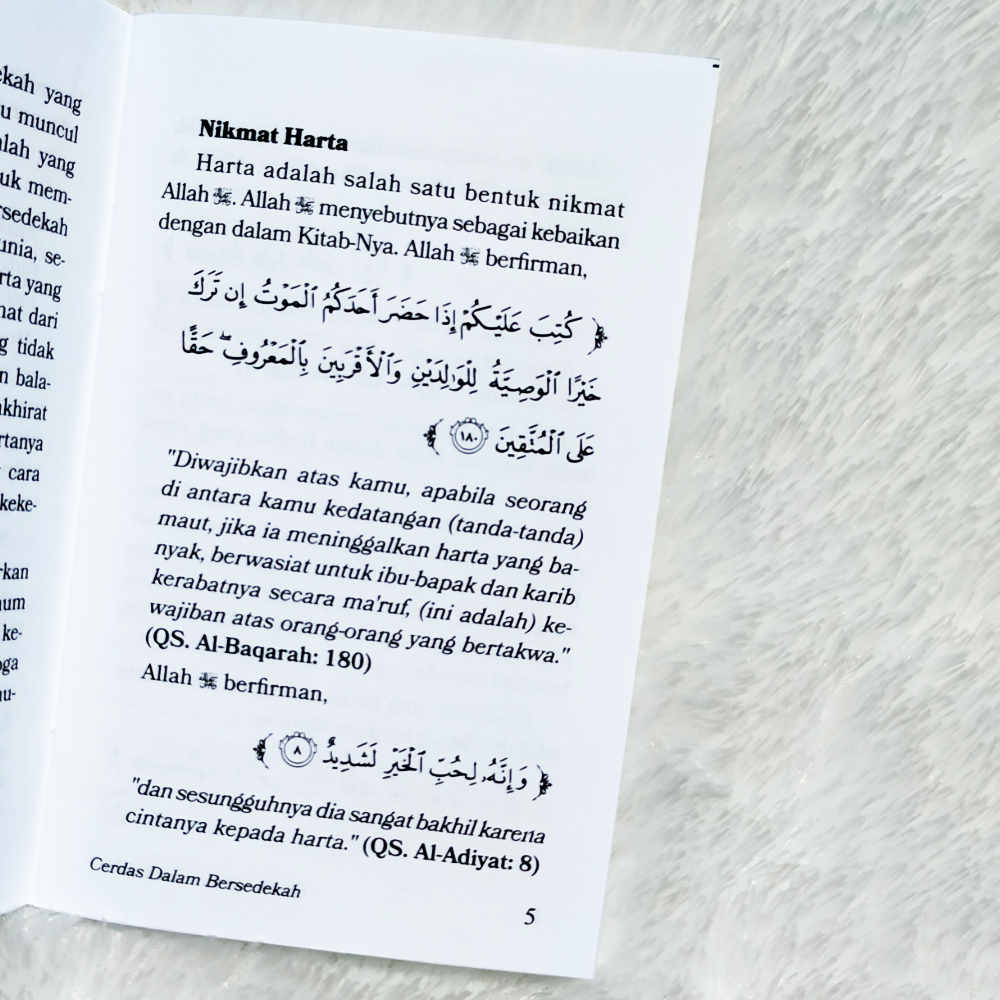 ekah yang
u muncul
alah yang
uk mem-
rsedekah
unia, se-
rta yang
nat dari
g tidak
n bala-
akhirat
rtanya
cara
keke-
rkan
num
ke-
oga
nu-
Nikmat Harta
Harta adalah salah satu bentuk nikmat
Allah ﷻ. Allah ﷻ menyebutnya sebagai kebaikan
dengan dalam Kitab-Nya. Allah ﷻ berfirman,
﴿ كُتِبَ عَلَيْكُمْ إِذَا حَضَرَ أَحَدَكُمُ ٱلْمَوْتُ إِن تَرَكَ
خَيْرًا ٱلْوَصِيَّةُ لِلْوَٰلِدَيْنِ وَٱلْأَقْرَبِينَ بِٱلْمَعْرُوفِ ۖ حَقًّا
عَلَى ٱلْمُتَّقِينَ ١٨٠ ﴾
"Diwajibkan atas kamu, apabila seorang
di antara kamu kedatangan (tanda-tanda)
maut, jika ia meninggalkan harta yang ba-
nyak, berwasiat untuk ibu-bapak dan karib
kerabatnya secara ma'ruf, (ini adalah) ke-
wajiban atas orang-orang yang bertakwa."
(QS. Al-Baqarah: 180)
Allah ﷻ berfirman,
﴿ وَإِنَّهُۥ لِحُبِّ ٱلْخَيْرِ لَشَدِيدٌ ٨ ﴾
"dan sesungguhnya dia sangat bakhil karena
cintanya kepada harta." (QS. Al-Adiyat: 8)
Cerdas Dalam Bersedekah
5